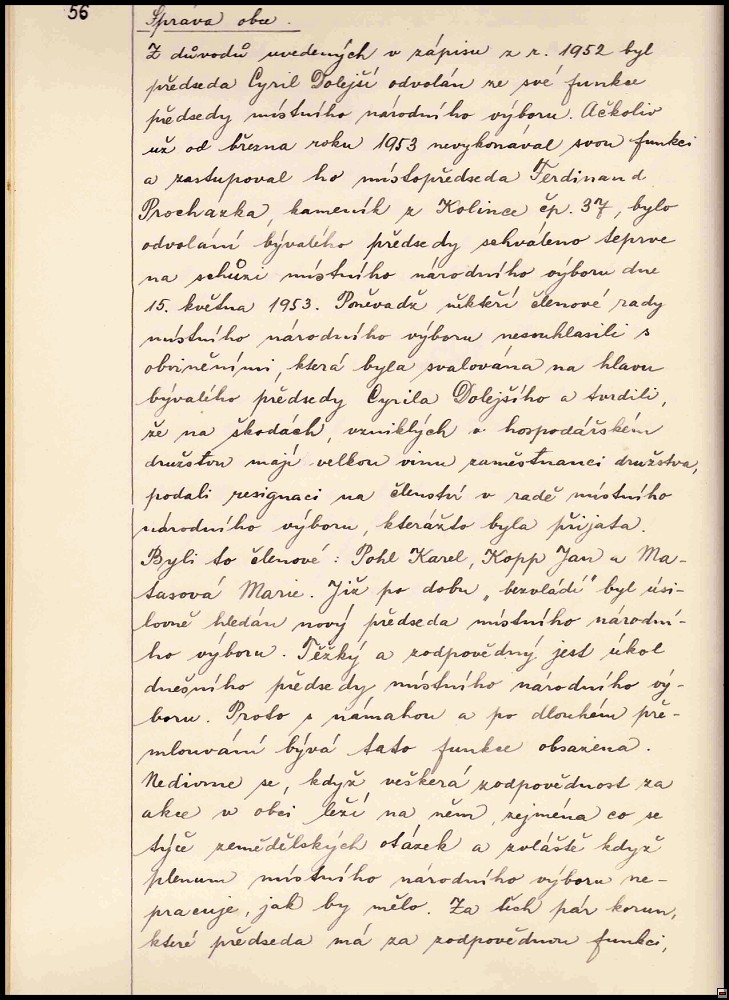 56
Správa obce.
Z důvodů uvedených v zápisu z r. 1952 byl
předseda Cyril Dolejší odvolán ze své funkce
předsedy místního národního výboru. Ačkoliv
už od března roku 1953 nevykonával svou funkci
a zastupoval ho místopředseda Ferdinand
Procházka, kameník z Kolince čp. 37, bylo
odvolání bývalého předsedy schváleno teprve
na schůzi místního národního výboru dne
15. května 1953. Poněvadž někteří členové rady
místního národního výboru nesouhlasili s
obviněními, která byla svalována na hlavu
bývalého předsedy Cyrila Dolejšího a tvrdili,
že na škodách, vzniklých v hospodářském
družstvu mají velkou vinu zaměstnanci družstva,
podali resignaci na členství v radě místního
národního výboru, kterážto byla přijata.
Byli to členové: Pohl Karel, Kopp Jan a Ma-
tasová Marie. Již po dobu „bezvládí" byl úsi-
lovně hledán nový předseda místního národní-
ho výboru. Těžký a zodpovědný jest úkol
dnešního předsedy místního národního vý-
boru. Proto s námahou a po dlouhém pře-
mlouvání bývá tato funkce obsazena.
Nedivme se, když veškerá zodpovědnost za
akce v obci leží na něm, zejména co se
týče zemědělských otázek a zvláště když
plenum místního národního výboru ne-
pracuje, jak by mělo. Za těch pár korun,
které předseda má za zodpovědnou funkci,